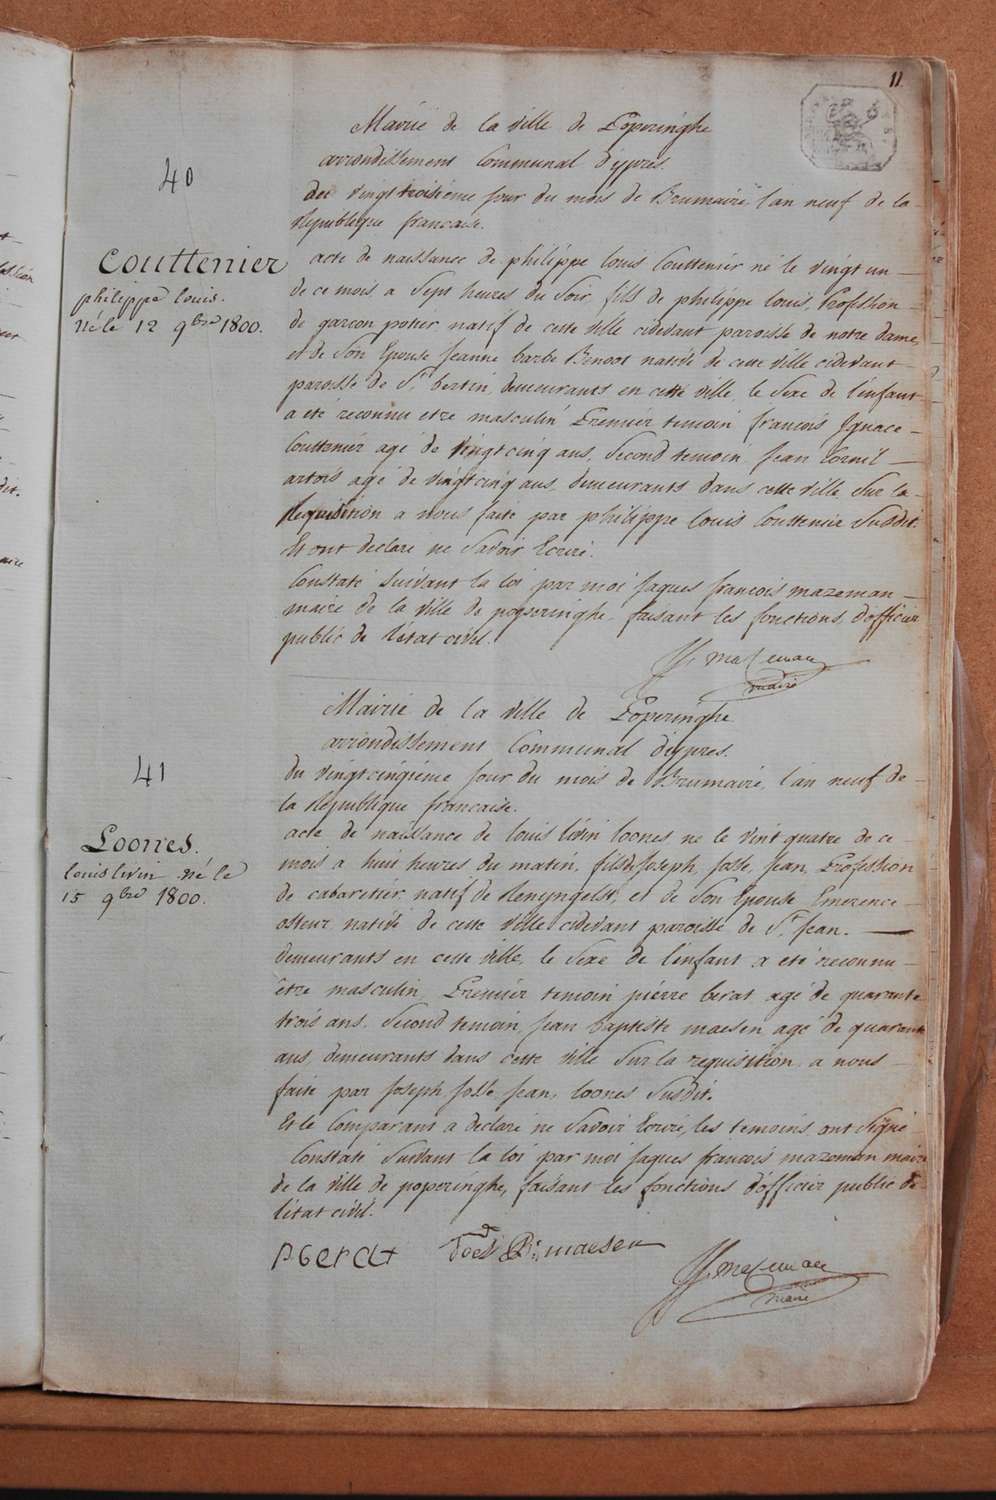 11.
40
Couttenier
philippe louis.
né le 12 9bre 1800.
Mairie de la ville de Poperinghe
arrondissement Communal d'ypres.
du vingttroisieme jour du mois de Brumaire l'an neuf de la
Republique francaise.
acte de naissance de philippe louis Couttenier né le vingt un
de ce mois a Sept heures du Soir, fils de philippe louis, Profession
de garcon potier, natif de cette ville cidevant paroisse de notre dame,
et de Son Epouse Jeanne barbe Benoot native de cette ville cidevant
paroisse de St bertin, demeurants en cette ville, le Sexe de l'enfant
a été reconnu etre masculin Premier temoin francois Ignace
Couttenier agé de vingtcinq ans, Second temoin Jean Cornil
artois agé de vingtcinq ans, demeurants dans cette ville Sur la
Requisition a nous faite par philippe louis Couttenier Susdit.
Et ont declaré ne Savoir Ecrire.
Constaté Suivant la loi par moi Jaques francois mazeman
maire de la ville de poperinghe, faisant les fonctions d'officier
public de l'etat civil.
JJ mazeman
maire
41
Loones.
louis livin né le
15 9bre 1800.
Mairie de la ville de Poperinghe
arrondissement Communal d'ypres.
du vingtcinqieme jour du mois de Brumaire, l'an neuf de
la Republique francaise.
acte de naissance de louis livin loones né le vint quatre de ce
mois a huit heures du matin, fils de Joseph, Josse, Jean, Profession
de cabaretier natif de Renyngelst, et de Son Epouse Emerence
osteur native de cette ville cidevant paroisse de St Jean.
demeurants en cette ville, le Sexe de l'enfant a eté reconnu
être masculin Premier temoin pierre berat agé de quarante
trois ans, Second temoin, Jean baptiste maesen agé de quarante
ans, demeurants dans cette ville Sur la requisition a nous
faite par Joseph Josse Jean, loones Susdit.
Et le Comparant a declaré ne Savoir Ecrire, les temoins ont Signé
Constaté Suivant la loi par moi Jaques francois mazeman maire
de la ville de poperinghe, faisant les fonctions d'officier public de
l'état civil.
maesen
JJ mazeman
maire